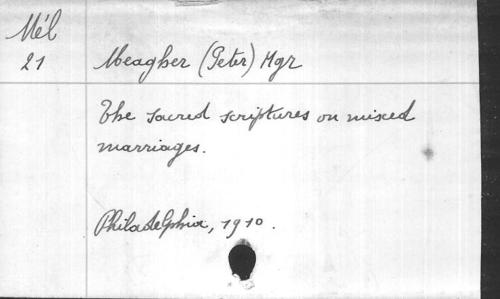 Mél
21
Meagher (Peter) Mgr
The sacred scriptures on mixed
marriages.
Philadelphia, 1910.